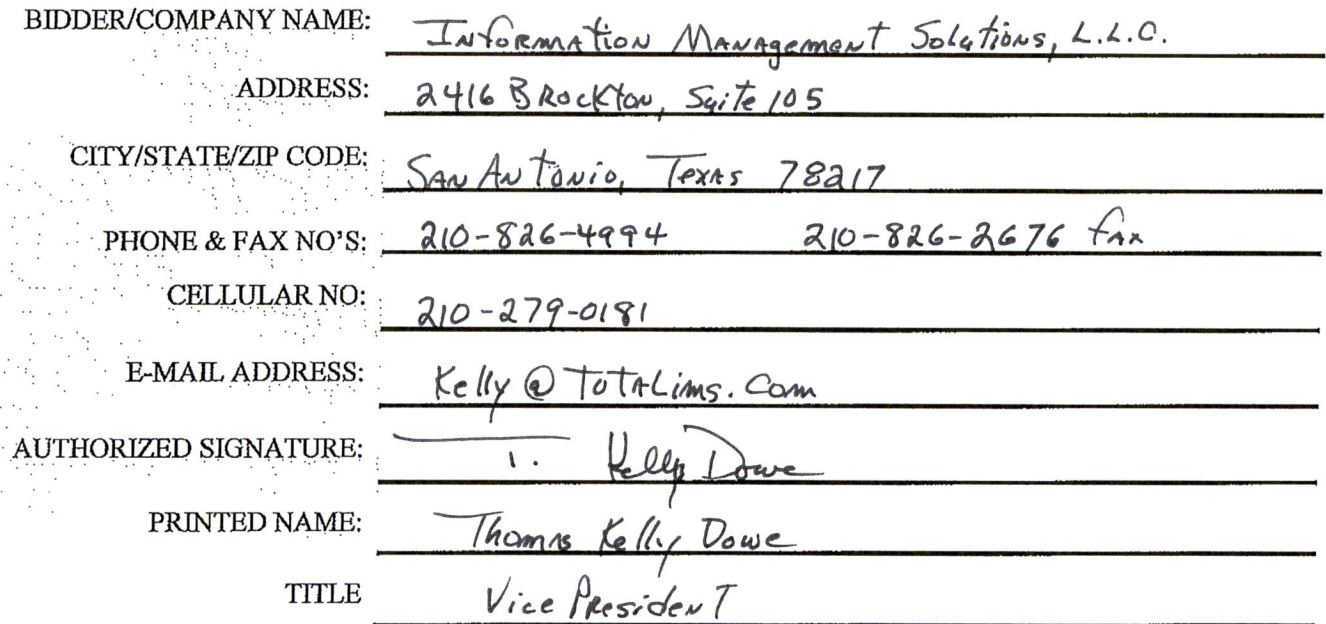 BIDDER/COMPANY NAME: Information Management Solutions, L.L.C.
ADDRESS: 2416 Brockton, Suite 105
CITY/STATE/ZIP CODE: San Antonio, Texas 78217
PHONE & FAX NO'S: 210-826-4994 210-826-2676 fax
CELLULAR NO: 210-279-0181
E-MAIL ADDRESS: Kelly@TotaLims.Com
AUTHORIZED SIGNATURE: T. Kelly Dowe
PRINTED NAME: Thomas Kelly Dowe
TITLE Vice President